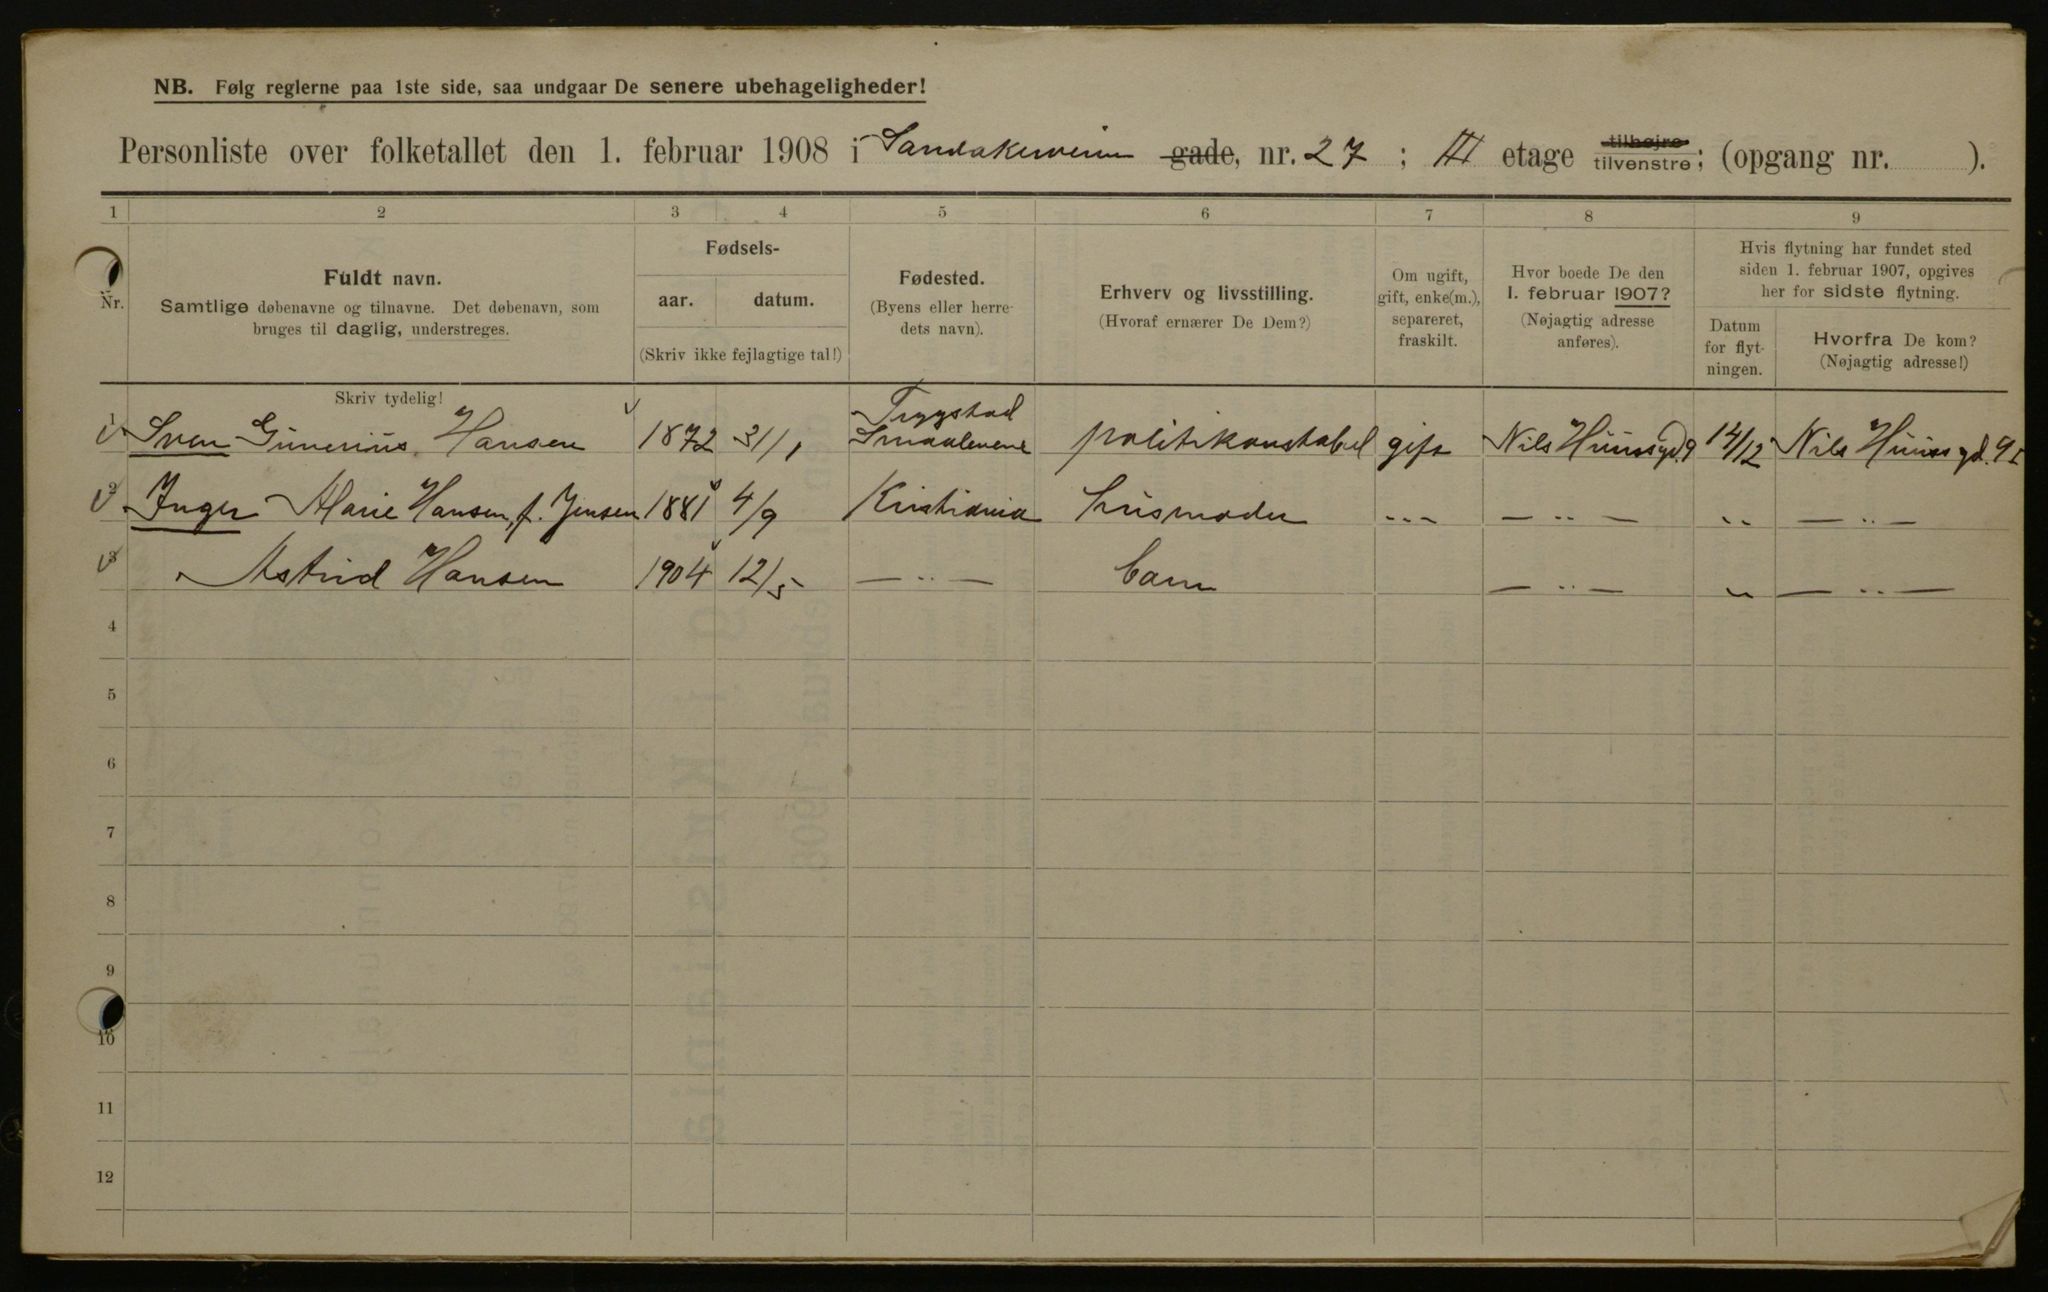 NB. Følg reglerne paa 1ste side, saa undgaar De senere ubehageligheder!
Personliste over folketallet den 1. februar 1908 i Sandakerveien gade, nr. 27 ; III etage tilhøjre tilvenstre ; (opgang nr. ).
1 2 3 4 5 6 7 8 9
Nr.
Fuldt navn.
Samtlige døbenavne og tilnavne. Det døbenavn, som
bruges til daglig, understreges.
Skriv tydelig!
Fødsels-
aar. datum.
(Skriv ikke fejlagtige tal!)
Fødested.
(Byens eller herre-
dets navn).
Erhverv og livsstilling.
(Hvoraf ernærer De Dem?)
Om ugift,
gift, enke(m.),
separeret,
fraskilt.
Hvor boede De den
1. februar 1907?
(Nøjagtig adresse
anføres).
Hvis flytning har fundet sted
siden 1. februar 1907, opgives
her for sidste flytning.
Datum
for flyt-
ningen.
Hvorfra De kom?
(Nøjagtig adresse!)
1 Sven Gunerius Hansen 1872 31/1 Trygstad Smaalenene politikonstabel gift Nils Huusgd. 9 14/12 Nils Huus gd. 9 I
2 Inger Marie Hansen, f. Jensen 1881 4/9 Kristiania husmoder - " - — " — " — " —
3 Astrid Hansen 1904 12/5 — " — barn — " — " — " —
4
5
6
7
8
9
10
11
12